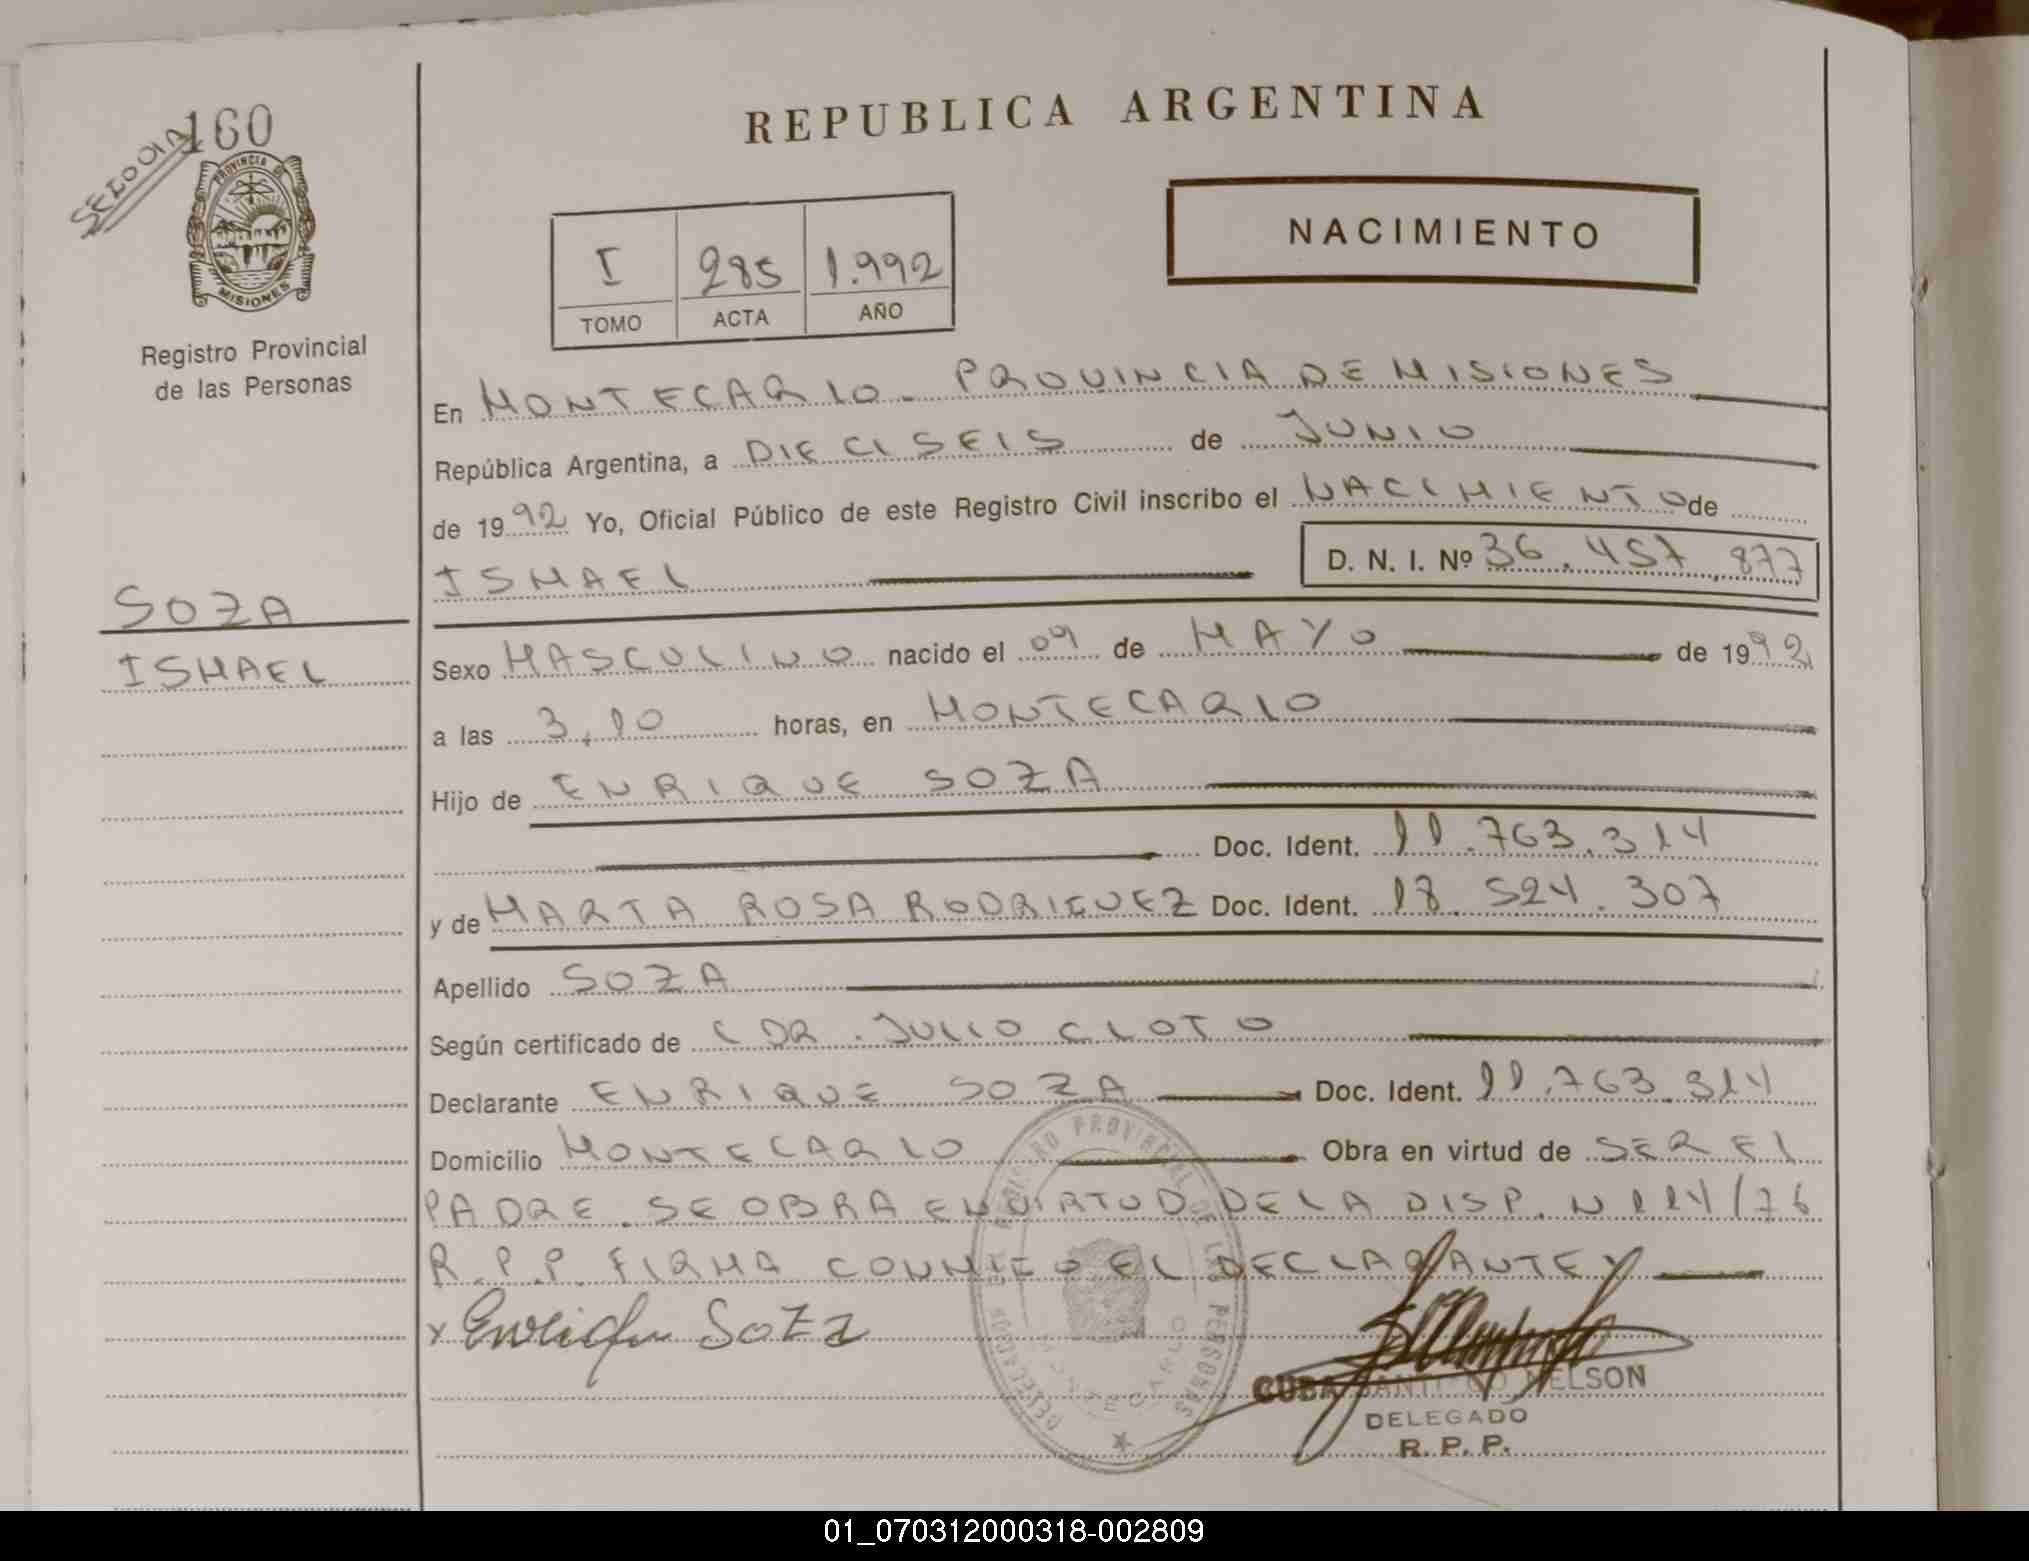 160
SE DO DIA
PROVINCIA DE
MISIONES
Registro Provincial
de las Personas
REPUBLICA ARGENTINA
NACIMIENTO
I 285 1.992
TOMO ACTA AÑO
En MONTECARLO - PROVINCIA DE MISIONES
República Argentina, a DIECISEIS de JUNIO
de 1992 Yo, Oficial Público de este Registro Civil inscribo el NACIMIENTO de
ISMAEL D. N. I. Nº 36.457.877
SOZA
ISMAEL
Sexo MASCULINO nacido el 09 de MAYO de 1992
a las 3,10 horas, en MONTECARLO
Hijo de ENRIQUE SOZA
Doc. Ident. 11.763.314
y de MARTA ROSA RODRIGUEZ Doc. Ident. 18.524.307
Apellido SOZA
Según certificado de L DR. JULIO CLOTO
Declarante ENRIQUE SOZA Doc. Ident. 11.763.314
Domicilio MONTECARLO Obra en virtud de SER EL
PADRE. SE OBRA EN VIRTUD DE LA DISP. N 114/76
R.P.P. FIRMA CONMIGO EL DECLARANTE
x Enrique Soza
REGISTRO PROVINCIAL DE LAS PERSONAS
MONTECARLO
CUBA SANTIAGO NELSON
DELEGADO
R. P. P.
01_070312000318-002809